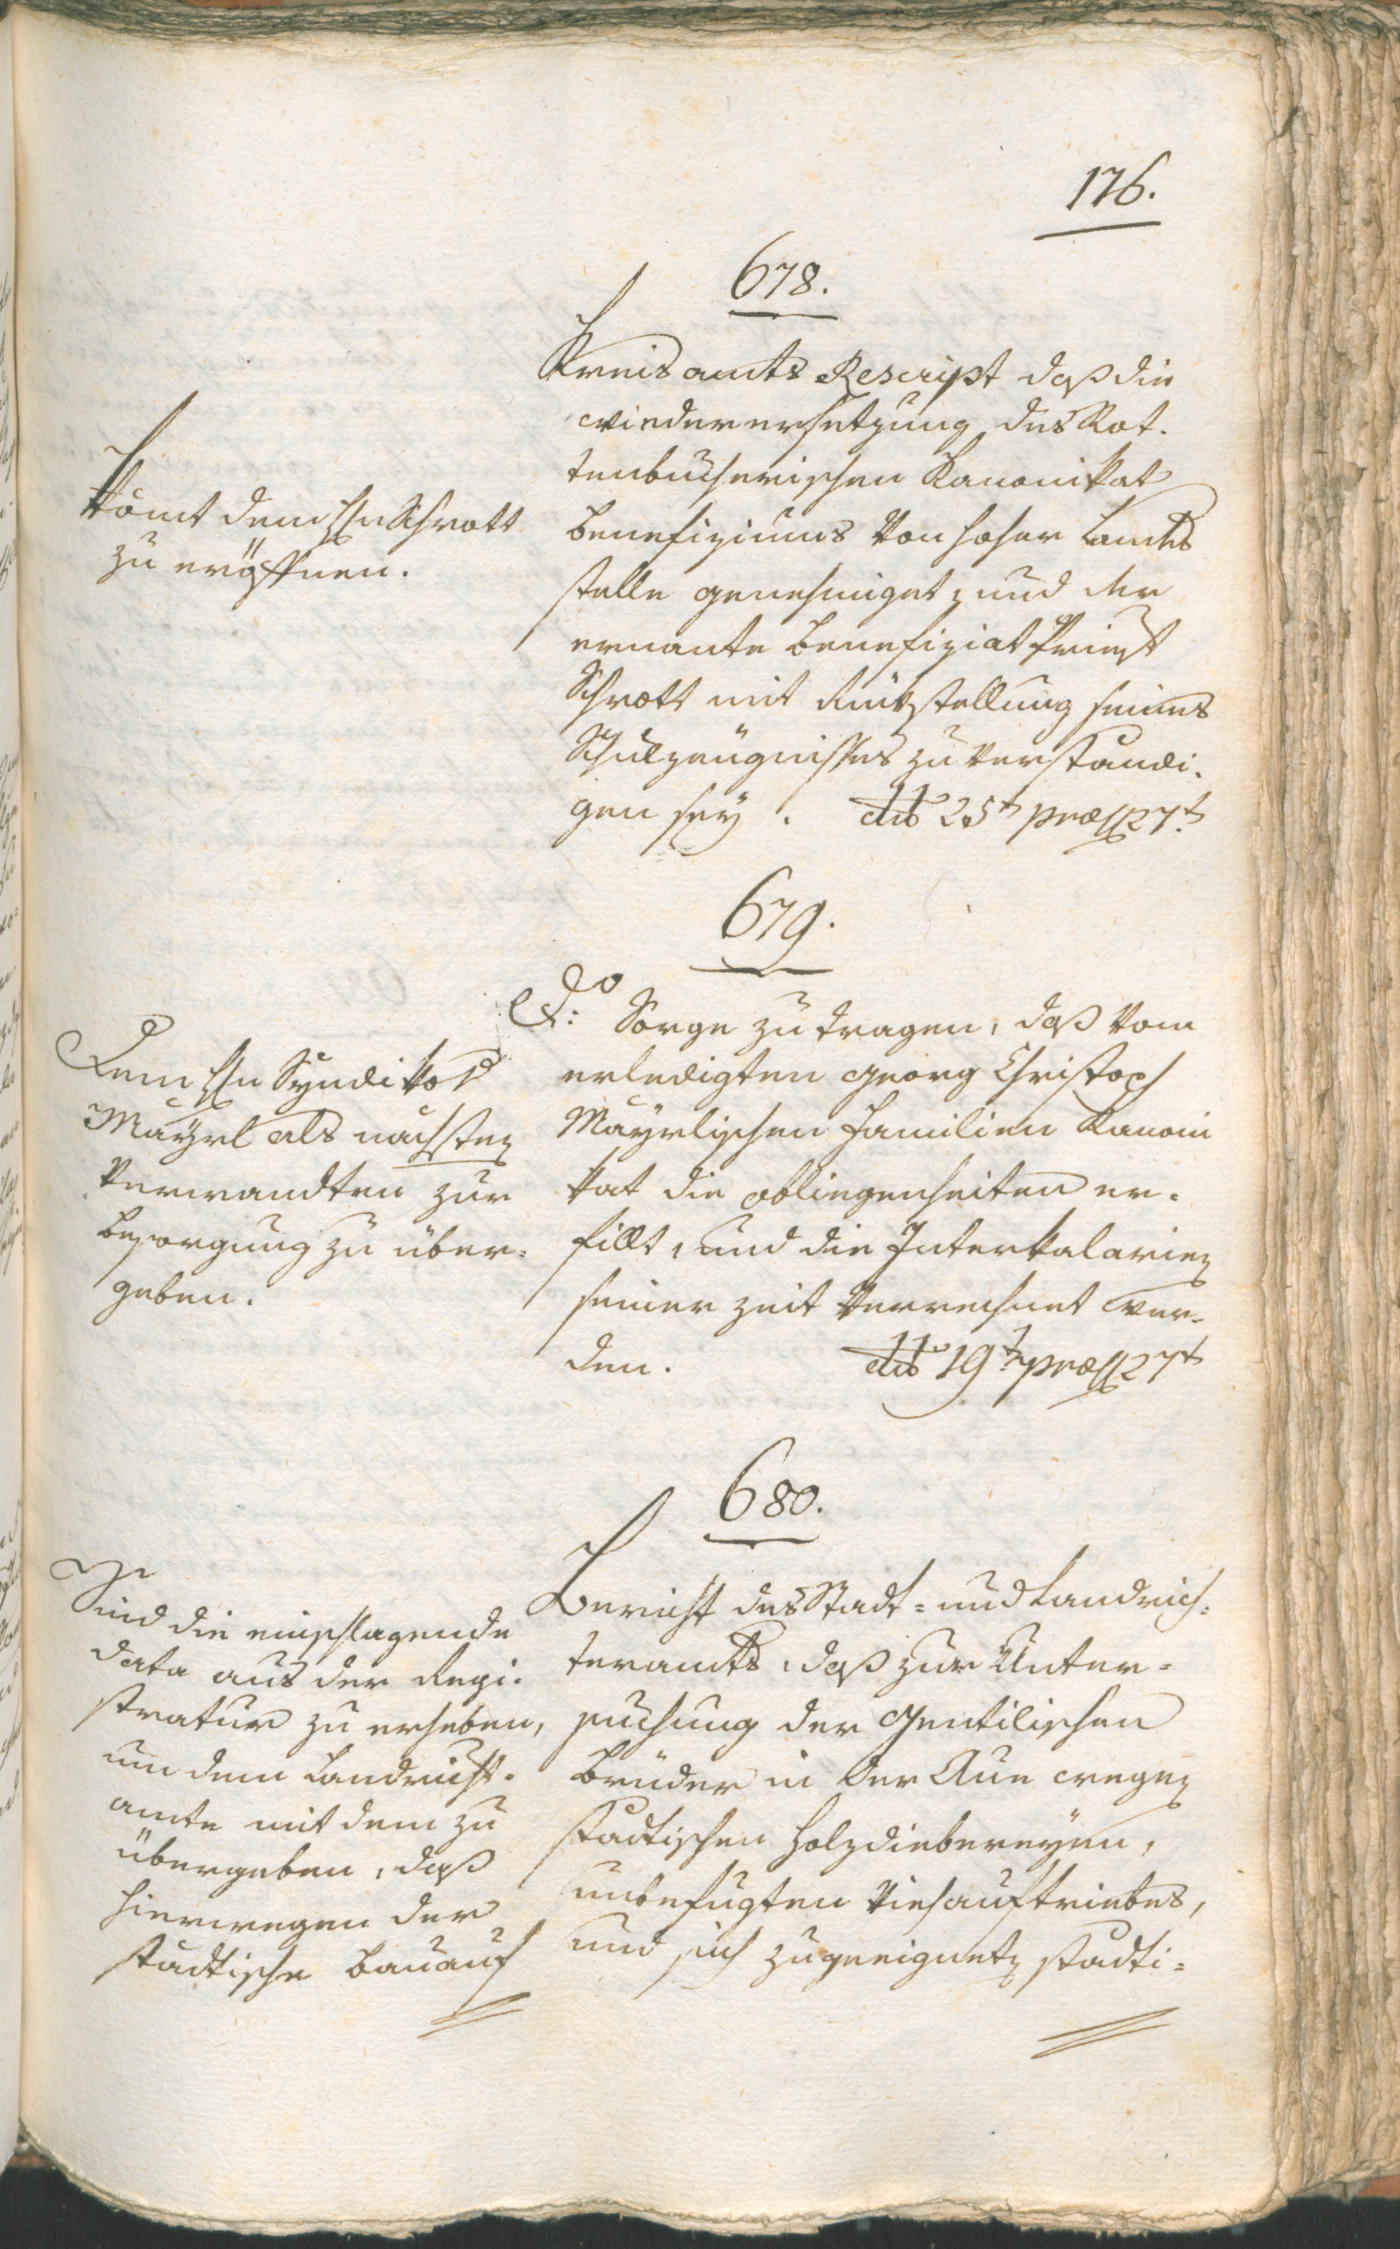 176.
678.
Kreisamts Rescript daß die
wiederersetzung des Rot-
tenbucherischen Kanonikat
benefiziums von hoher Landes
stelle genehmiget, und der
ernante Benefiziat Priest
Schrott mit Rükstellung seines
Schulzeugnisses zu verständi-
gen sey. dto 25t præs 27t
Kömt dem Hn Schrott
zu eröffnen.
679.
Do: Sorge zu tragen, daß vom
erledigten Georg Christoph
Mayrlischen Familien Kanoni
kat die obliegenheiten er-
füllt, und die Interkalarien
seiner zeit verrechnet wer-
den. dto 19t præs 27t
Dem Hn Syndikus
Mayrl als nächsten
Verwandten zur
besorgung zu über-
geben.
680.
Bericht des Stadt- und Landrich-
teramts, daß zur Unter-
suchung der Gentilischen
Brüder in der Aue wegen
stadtischen Holzdiebereyen,
unbefugten Viehauftriebes,
und sich zugeeigneten stadti-
Sind die einschlagende
Data aus der Regi-
stratur zu erheben,
um dem Landricht-
amte mit dem zu
übergeben, daß
hierwegen der
stadtische Bauauf